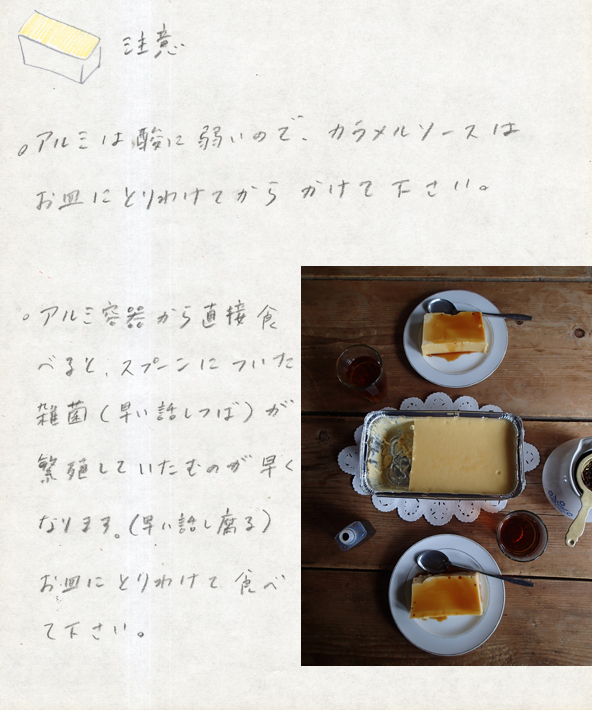 注意
。アルミは酸に弱いので、カラメルソースは
お皿にとりわけてから かけて下さい。
。アルミ容器から直接食
べると、スプーンについた
雑菌（早い話しつば）が
繁殖していたむのが早く
なります。（早い話し腐る）
お皿にとりわけて食べ
て下さい。